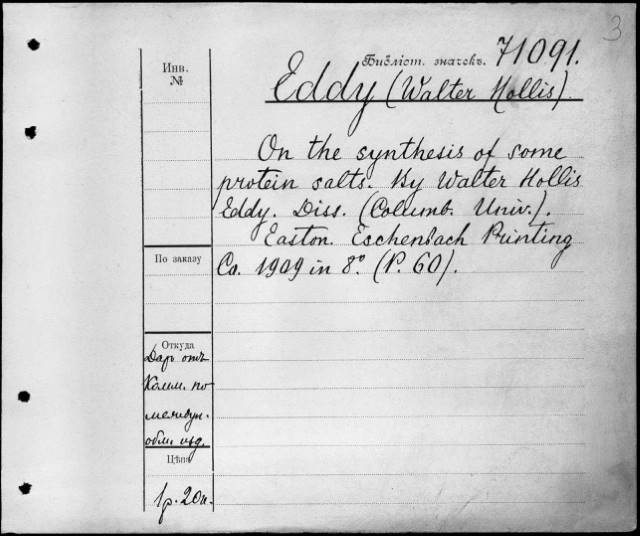 3
Библіот. значекъ. 71091.
Инв.
№
Eddy (Walter Hollis)
On the synthesis of some
protein salts. By Walter Hollis
Eddy. Diss. (Columb. Univ.).
Easton. Eschenbach Printing
Co. 1909 in 8º. (P. 60).
По заказу
Откуда
Даръ отъ
Комм. по
междун.
обм. изд.
Цѣна
1р. 20к.